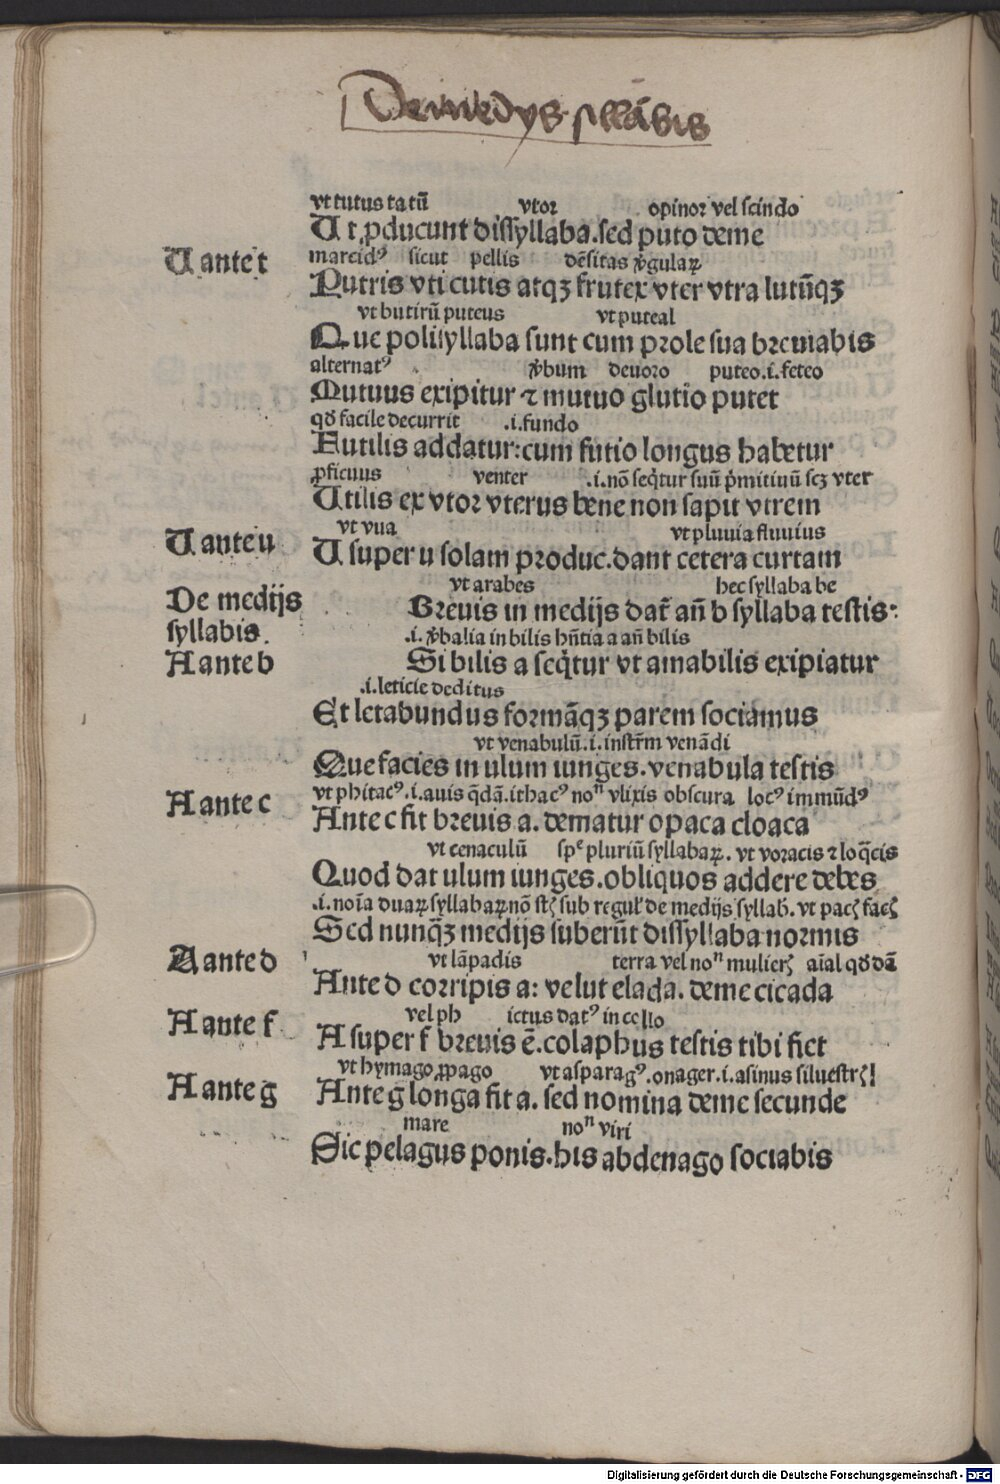 De medys sillabis
vt tutus tatū vtor opinor vel scindo
Ut ꝓducunt dissyllaba.sed puto deme
U ante t
marcidꝰ sicut pellis dēsitas v̓gulaꝝ
Putris vti cutis atqꝫ frutex vter vtra lutūqꝫ
vt butirū puteus vt puteal
Que polisyllaba sunt cum prole sua breuiabis
alternatꝰ v̓bum deuoro puteo.i.feteo
Mutuus exipitur ⁊ mutuo glutio putet
qd̓ facile decurrit .i.fundo
Futilis addatur:cum futio longus habetur
ꝓficuus venter .i.nō seq̄tur suū p̓mitiuū scꝫ vter
Utilis ex vtor vterus bene non sapit vtrem
U ante u
vt vua vt pluuia fluuius
U super u solam produc.dant cetera curtam
De medijs
syllabis.
vt arabes hec syllaba be
Breuis in medijs dat̄ an̄ b syllaba testis:
.i. v̓balia in bilis hn̄tia a an̄ bilis
A ante b
Si bilis a seq̄tur vt amabilis exipiatur
.i.leticie deditus
Et letabundus formāqꝫ parem sociamus
vt venabulū.i.instr̄m venādi
Que facies in ulum iunges.venabula testis
A ante c
vt phitacꝰ.i.auis q̄dā.ithacꝰ noⁿ vlixis obscura locꝰ immūdꝰ
Ante c fit breuis a. dematur opaca cloaca
vt cenaculū spᵉ pluriū syllabaꝝ. vt voracis ⁊ loq̄cis
Quod dat ulum iunges.obliquos addere debes
.i.noīa duaꝝ syllabaꝝ nō stꝭ sub regul̓ de medijs syllab̄. vt pacꝭ facꝭ
Sed nunq̄ꝫ medijs suberūt dissyllaba normis
A ante d
vt lāpadis terra vel noⁿ mulierꝭ aīal qd̓dā
Ante d corripis a: velut elada. deme cicada
A ante f
vel ph ictus datꝰ in collo
A super f breuis ē.colaphus testis tibi fiet
A ante g
vt hymago ꝓpago vt asparagꝰ.onager.i.asinus siluestrꝭ
Ante g longa fit a. sed nomina deme secunde
mare noⁿ viri
Sic pelagus ponis.his abdenago sociabis
Digitalisierung gefördert durch die Deutsche Forschungsgemeinschaft - DFG